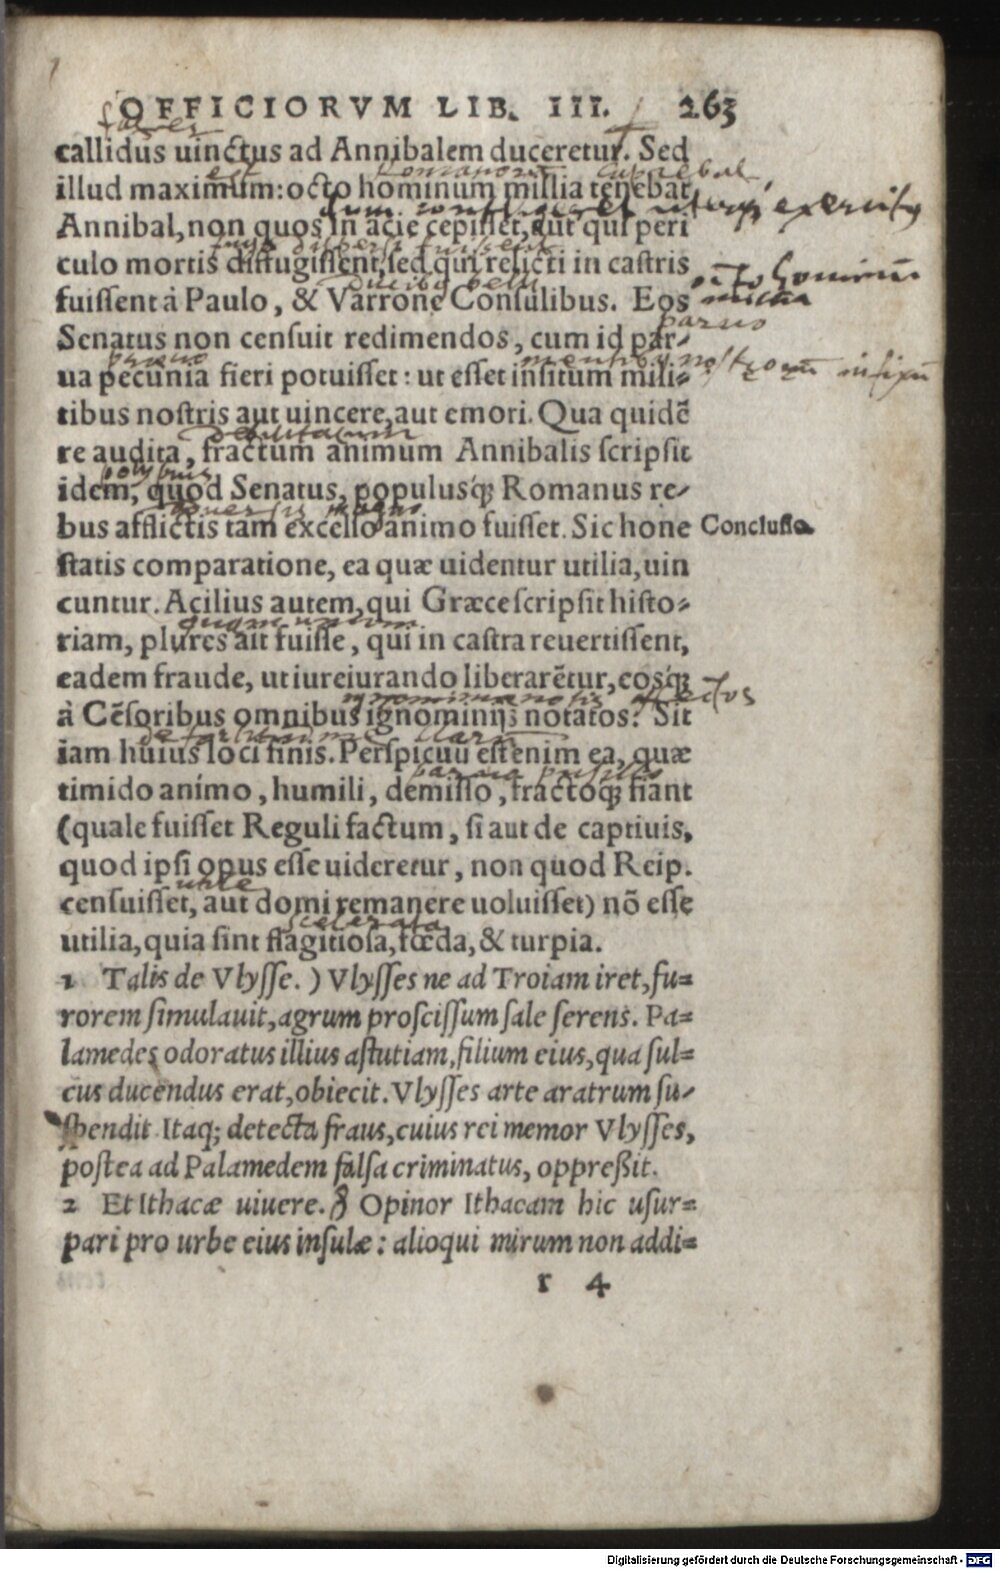 OFFICIORVM LIB. III. 263
callidus uinctus ad Annibalem duceretur. Sed
est Romanorū capiebat
illud maximum: octo hominum millia tenebat
cum confligeret uterq; exercitus
Annibal, non quos in acie cepisset, aut qui peri
fuga dispersi fuissent
culo mortis diffugissent, sed qui relicti in castris
ducibus belli octo hominum
fuissent à Paulo, & Varrone Consulibus. Eos millia
Senatus non censuit redimendos, cum id par⸗
paruo
ua pecunia fieri potuisset: ut esset insitum mili⸗
mentibus nostrorum infixū
tibus nostris aut uincere, aut emori. Qua quidē
debilitatum
re audita, fractum animum Annibalis scripsit
polybius
idem, quod Senatus, populusq́ꝫ Romanus re⸗
aduersis magno
bus afflictis tam excelso animo fuisset. Sic hone Conclusio.
statis comparatione, ea quæ uidentur utilia, uin
cuntur. Acilius autem, qui Græce scripsit histo⸗
quam unum
riam, plures ait fuisse, qui in castra reuertissent,
eadem fraude, ut iureiurando liberarētur, eosq́ꝫ
ignominia notis affectos
à Cēsoribus omnibus ignominijs notatos. Sit
clarū
iam huius loci finis. Perspicuū est enim ea, quæ
paruo pusillo
timido animo, humili, demisso, fractoq́ꝫ fiant
(quale fuisset Reguli factum, si aut de captiuis,
quod ipsi opus esse uideretur, non quod Reip.
utile
censuisset, aut domi remanere uoluisset) nō esse
scelerata
utilia, quia sint flagitiosa, fœda, & turpia.
1 Talis de Vlysse. ) Vlysses ne ad Troiam iret, fu⸗
rorem simulauit, agrum proscissum sale serens. Pa⸗
lamedes odoratus illius astutiam, filium eius, qua sul⸗
cus ducendus erat, obiecit. Vlysses arte aratrum su⸗
spendit Itaq; detecta fraus, cuius rei memor Vlysses,
postea ad Palamedem falsa criminatus, oppreßit.
2 Et Ithacæ uiuere. ) Opinor Ithacam hic usur⸗
pari pro urbe eius insulæ: alioqui mirum non addi⸗
r 4
Digitalisierung gefördert durch die Deutsche Forschungsgemeinschaft - DFG